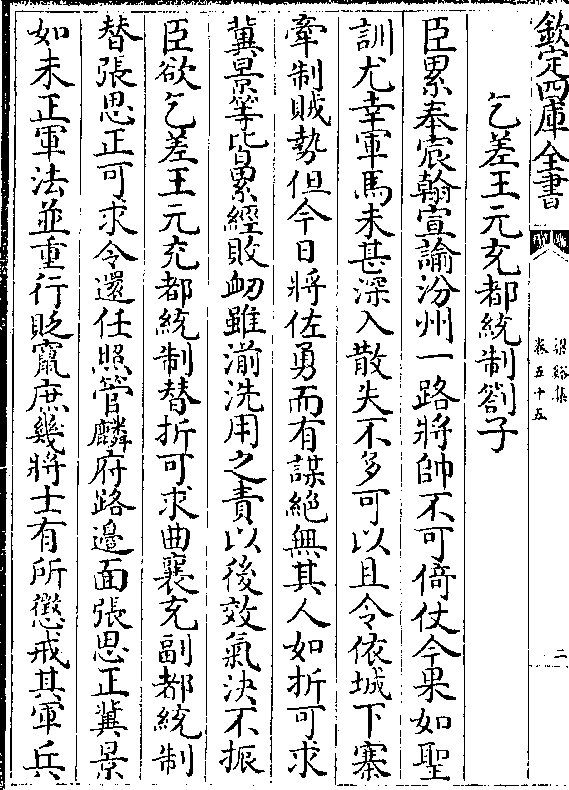 欽定四庫全書
梁谿集
卷五十五
二
乞差王元充都統制劄子
臣累奉宸翰宣諭汾州一路將帥不可倚仗今果如聖
訓尤幸軍馬未甚深入散失不多可以且令依城下寨
牽制賊勢但今日將佐勇而有謀絶無其人如折可求
冀景等皆累經敗衂雖湔洗用之責以後效氣決不振
臣欲乞差王元充都統制替折可求曲襄充副都統制
替張思正可求令還任照管麟府路邊面張思正冀景
如未正軍法並重行貶竄庶幾將士有所懲戒其軍兵